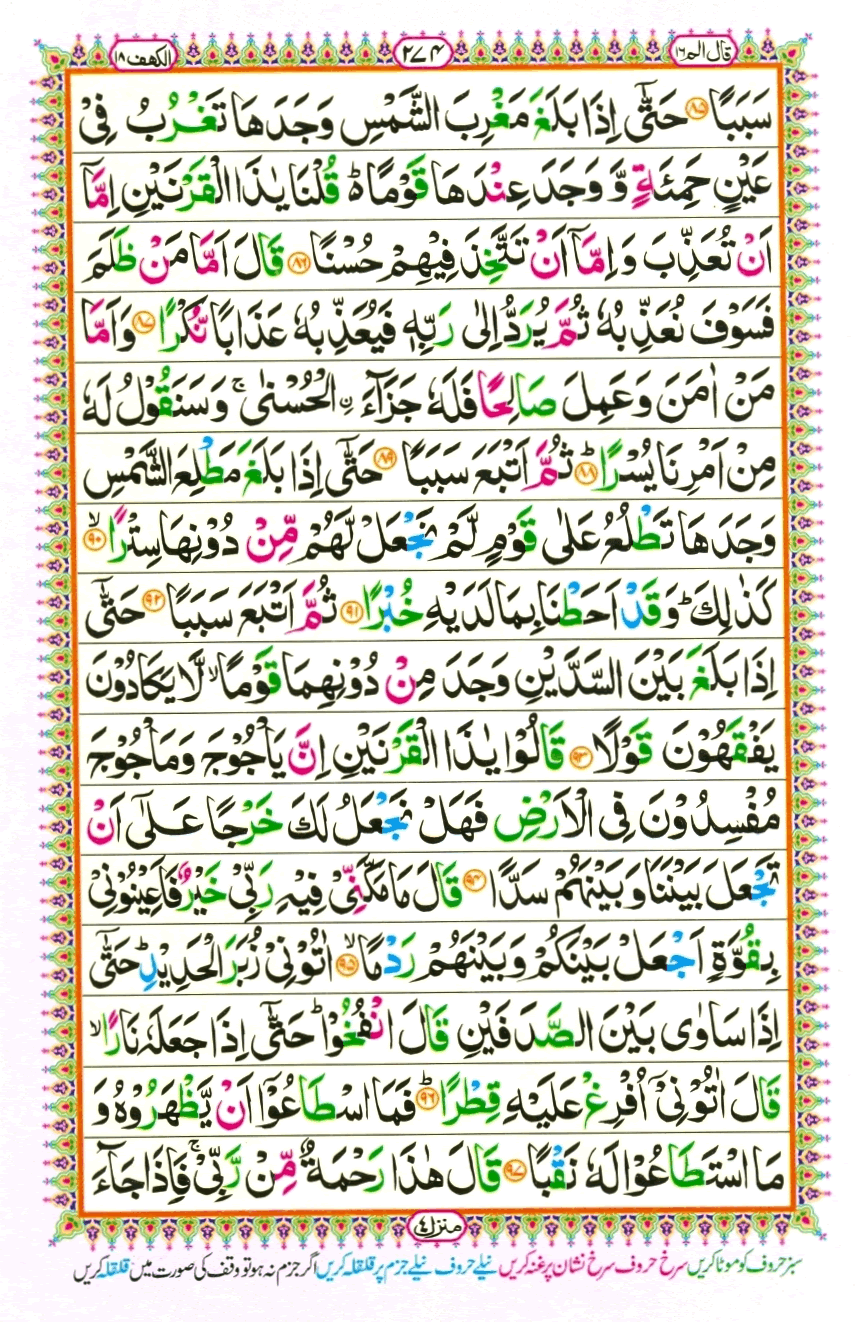 قال الم ۱۶ ۲۷۴ الکھف ۱۸
سَبَبًا ﴿۸۵﴾ حَتّٰۤی اِذَا بَلَغَ مَغْرِبَ الشَّمْسِ وَجَدَهَا تَغْرُبُ فِیْ
عَیْنٍ حَمِئَةٍ وَّ وَجَدَ عِنْدَهَا قَوْمًا ؕ۬ قُلْنَا یٰذَا الْقَرْنَیْنِ اِمَّاۤ
اَنْ تُعَذِّبَ وَ اِمَّاۤ اَنْ تَتَّخِذَ فِیْهِمْ حُسْنًا ﴿۸۶﴾ قَالَ اَمَّا مَنْ ظَلَمَ
فَسَوْفَ نُعَذِّبُهٗ ثُمَّ یُرَدُّ اِلٰی رَبِّهٖ فَیُعَذِّبُهٗ عَذَابًا نُّكْرًا ﴿۸۷﴾ وَ اَمَّا
مَنْ اٰمَنَ وَ عَمِلَ صَالِحًا فَلَهٗ جَزَآءَ ۨ الْحُسْنٰی ۚ وَ سَنَقُوْلُ لَهٗ
مِنْ اَمْرِنَا یُسْرًا ﴿ؕ۸۸﴾ ثُمَّ اَتْبَعَ سَبَبًا ﴿۸۹﴾ حَتّٰۤی اِذَا بَلَغَ مَطْلِعَ الشَّمْسِ
وَجَدَهَا تَطْلُعُ عَلٰی قَوْمٍ لَّمْ نَجْعَلْ لَّهُمْ مِّنْ دُوْنِهَا سِتْرًا ﴿ۙ۹۰﴾
كَذٰلِكَ ؕ وَ قَدْ اَحَطْنَا بِمَا لَدَیْهِ خُبْرًا ﴿۹۱﴾ ثُمَّ اَتْبَعَ سَبَبًا ﴿۹۲﴾ حَتّٰۤی
اِذَا بَلَغَ بَیْنَ السَّدَّیْنِ وَجَدَ مِنْ دُوْنِهِمَا قَوْمًا ۙ لَّا یَكَادُوْنَ
یَفْقَهُوْنَ قَوْلًا ﴿۹۳﴾ قَالُوْا یٰذَا الْقَرْنَیْنِ اِنَّ یَاْجُوْجَ وَ مَاْجُوْجَ
مُفْسِدُوْنَ فِی الْاَرْضِ فَهَلْ نَجْعَلُ لَكَ خَرْجًا عَلٰۤی اَنْ
تَجْعَلَ بَیْنَنَا وَ بَیْنَهُمْ سَدًّا ﴿۹۴﴾ قَالَ مَا مَكَّنِّیْ فِیْهِ رَبِّیْ خَیْرٌ فَاَعِیْنُوْنِیْ
بِقُوَّةٍ اَجْعَلْ بَیْنَكُمْ وَ بَیْنَهُمْ رَدْمًا ﴿ۙ۹۵﴾ اٰتُوْنِیْ زُبَرَ الْحَدِیْدِ ؕ حَتّٰۤی
اِذَا سَاوٰی بَیْنَ الصَّدَفَیْنِ قَالَ انْفُخُوْا ؕ حَتّٰۤی اِذَا جَعَلَهٗ نَارًا ۙ
قَالَ اٰتُوْنِیْۤ اُفْرِغْ عَلَیْهِ قِطْرًا ﴿ؕ۹۶﴾ فَمَا اسْطَاعُوْۤا اَنْ یَّظْهَرُوْهُ وَ
مَا اسْتَطَاعُوْا لَهٗ نَقْبًا ﴿۹۷﴾ قَالَ هٰذَا رَحْمَةٌ مِّنْ رَّبِّیْ ۚ فَاِذَا جَآءَ
منزل ۴
سبز حروف کو موٹا کریں سرخ حروف سرخ نشان پر غنہ کریں نیلے حروف نیلے جزم پر قلقلہ کریں اگر جزم نہ ہو تو وقف کی صورت میں قلقلہ کریں